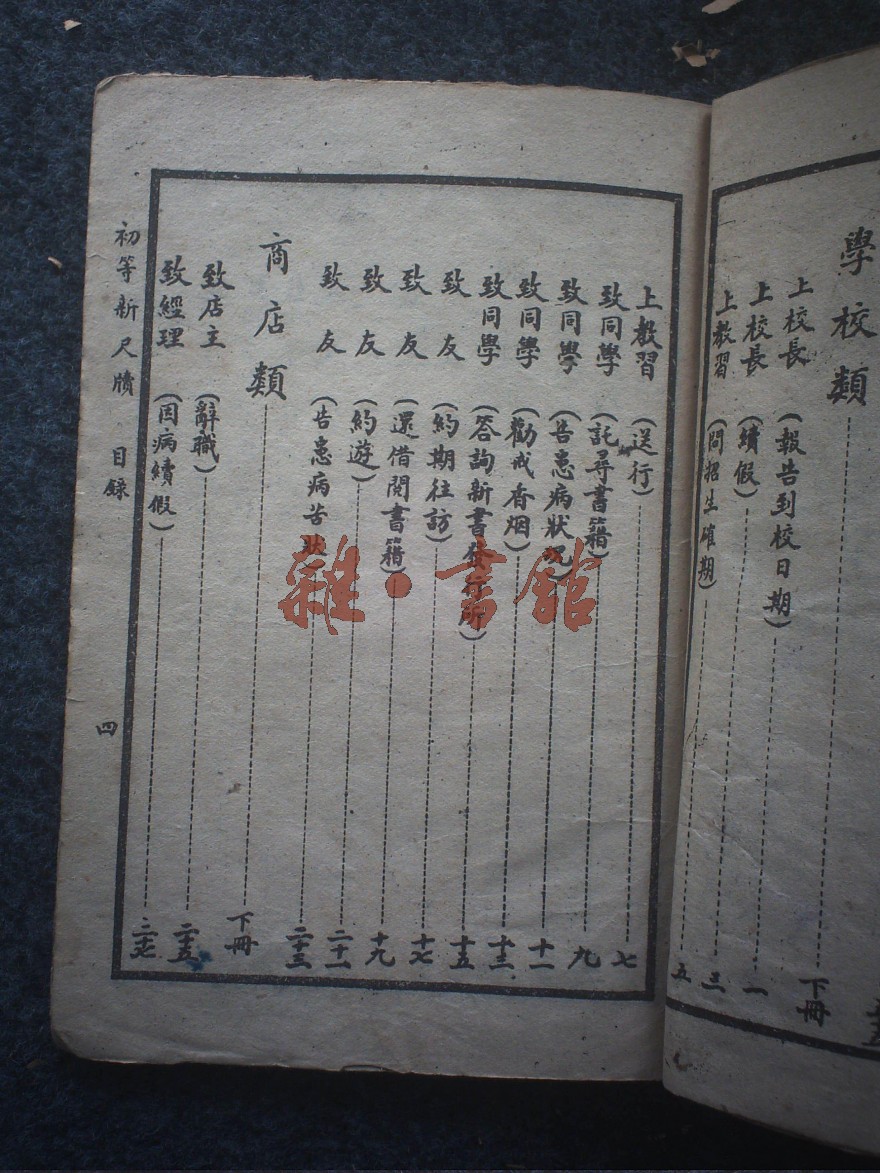 學校類 下冊
上校長 (報告到校日期) 一
上校長 (續假) 三
上教習 (問招生確期) 五
上教習 (送行) 七
致同學 (託尋書籍) 九
致同學 (告患病狀况) 十一
致同學 (勸戒香烟) 十三
致同學 (答詢新書發行所) 十五
致友 (約期往訪) 十七
致友 (還借閱書籍) 十九
致友 (約遊) 二十一
致友 (告患病苦狀) 二十三
商店類 下冊
致店主 (辭職) 二十五
致經理 (因病續假) 二十七
初等新尺牘 目錄 四
雜·書館